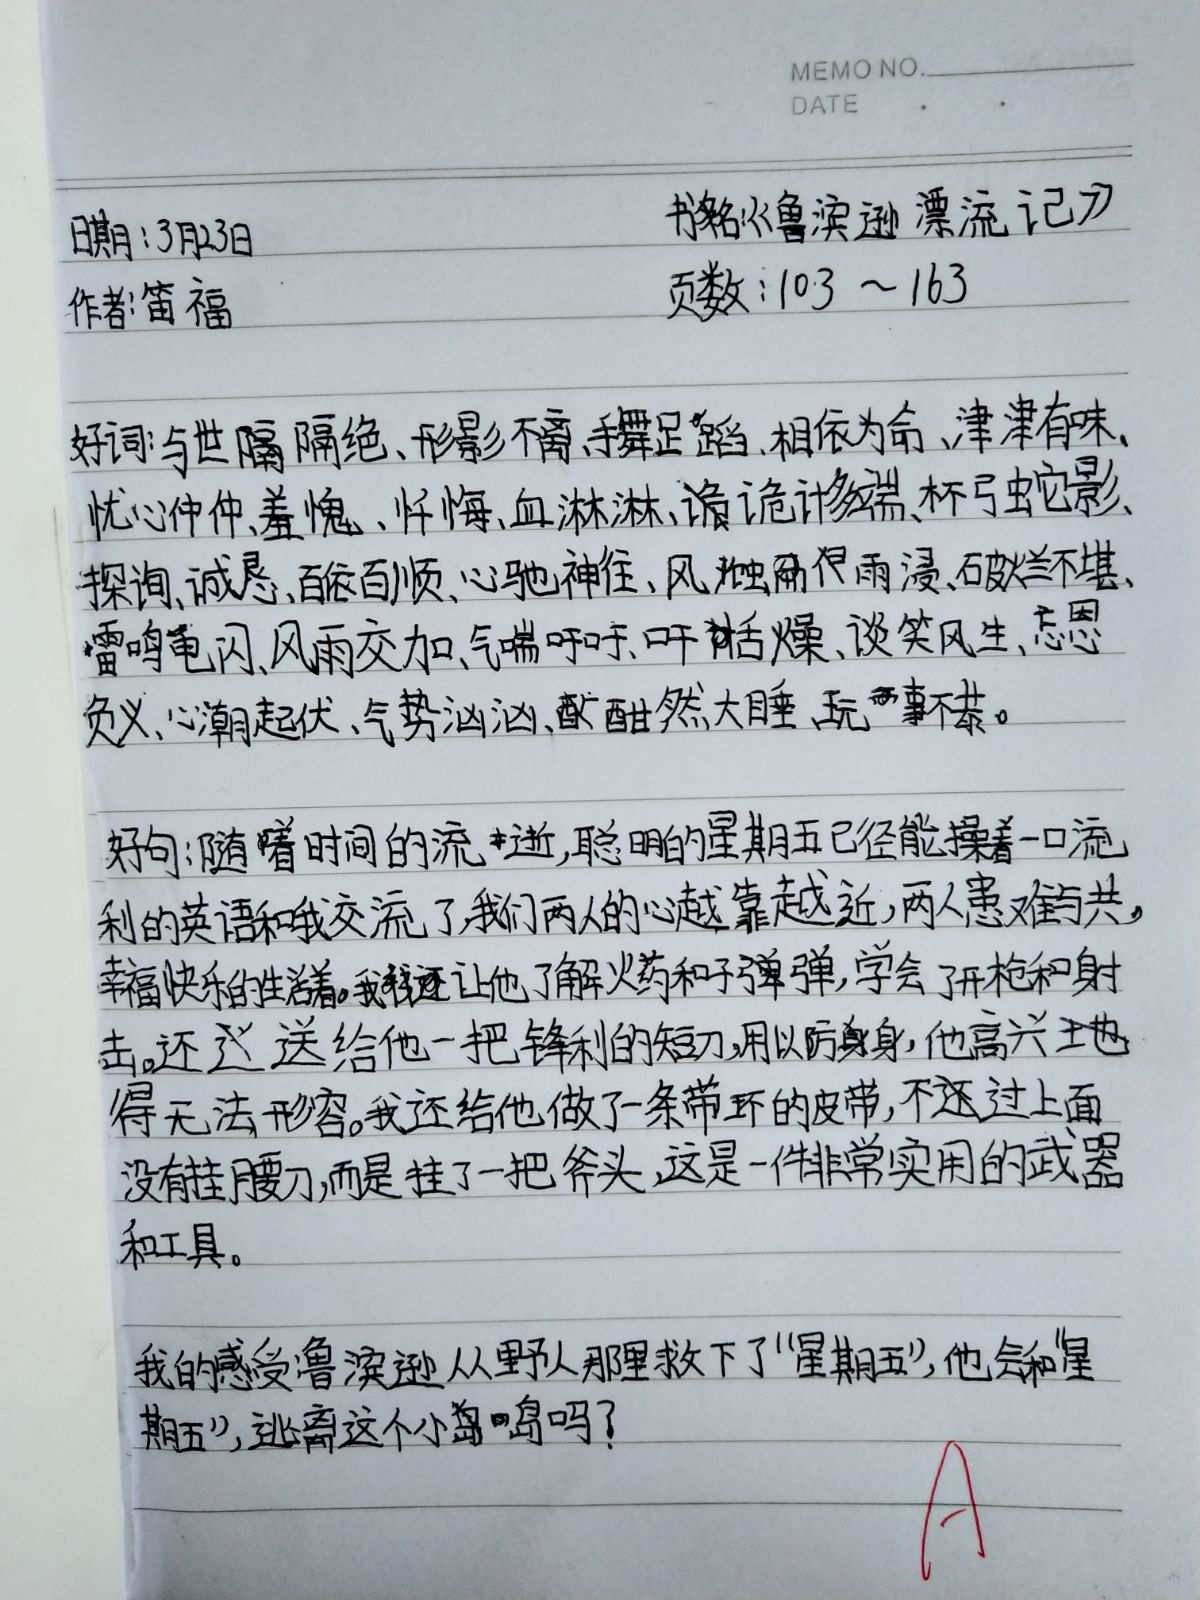 MEMO NO.
DATE
日期:3月23日 书名:《鲁滨逊漂流记》
作者:笛福 页数:103～163
好词:与世隔隔绝、形影不离、手舞足蹈、相依为命、津津有味、
忧心忡忡、羞愧、忏悔、血淋淋、诡诡计多端、杯弓蛇影、
探询、诚恳、百依百顺、心驰神往、风蚀雨浸、破烂不堪、
雷鸣电闪、风雨交加、气喘吁吁、口干舌燥、谈笑风生、忘恩
负义、心潮起伏、气势汹汹、酣然大睡、玩事不恭。
好句:随着时间的流逝,聪明的星期五已径能操着一口流
利的英语和我交流了,我们两人的心越靠越近,两人患难与共,
幸福快乐的生活着。我还让他了解火药和子弹弹,学会了开枪和射
击。还送给他一把锋利的短刀,用以防身身,他高兴地
得无法形容。我还给他做了一条带环的皮带,不过上面
没有挂腰刀,而是挂了一把斧头,这是一件非常实用的武器
和工具。
我的感受鲁滨逊从野人那里救下了“星期五”,他会和“星
期五”,逃离这个小岛岛吗?
A